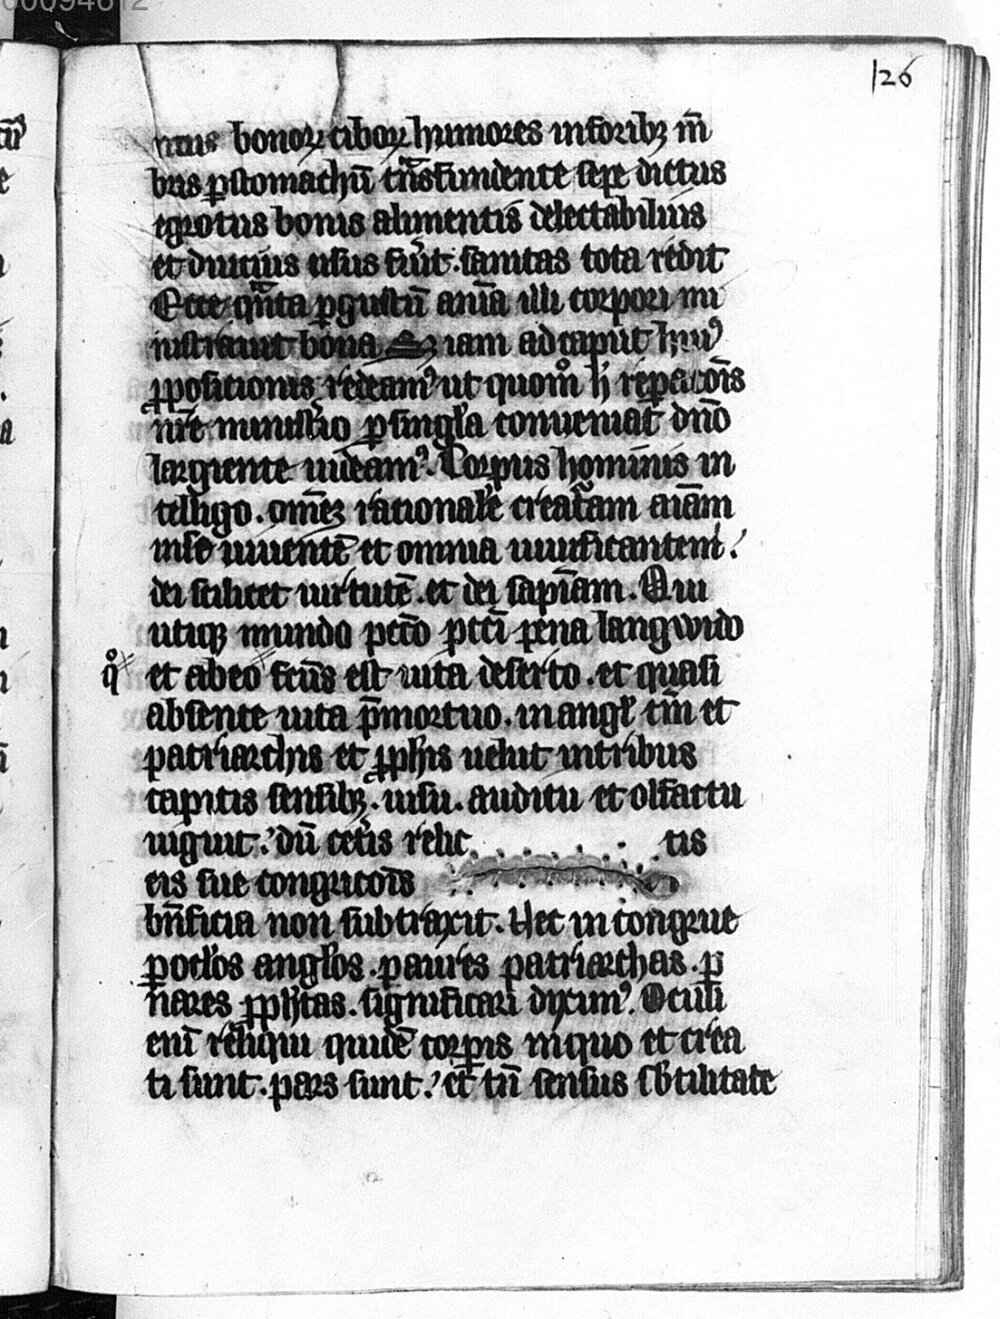 00094612
126
bonoꝝ ciboꝝ humores inforibꝫ m̄
bus ꝑ stomachū tͣnsfundente sepe dictus
egrotus bonis alimentis delectabilius
et diucius usus fuĩt. sanitas tota redit
Ecce qͣnta ꝑ gustū aīa illi corpori mi
nistrauit bona iam ad caput huiꝰ
ꝓpositionis redeamꝰ ut quom̊ h̄ reꝑacōis
nr̄e ministĩo ꝑ singl̃a conueniat dn̄o
largiente uideamꝰ. Corpus hominis in
telligo. om̄eꝫ rationale creatͣam aīam
in se uiuentē et omnia uiuificantem.ʼ
dei scilicet uirtutē. et dei sapīam. Qui
utiqꝫ mundo pctō pcci pena langwido
qͦ
et ab eo fcūs est uita deserto. et quasi
absente uita p̄mortuo. in angl̃ tm̄ et
patriarchis et ꝓphis uelut in tribus
capitis sensibꝫ. uisu. auditu et olfactu
uiguit.ʼ dū cet̃is relic tis
eis sue congrucōis
bn̄ficia non subtraxit. Hec in congrue
ꝑ oc̃los angl̃os. ꝑ aures patriarchas. ꝑ
nares ꝓphtas. significari diximꝰ. Oculi
enī reliqui quidē corꝑis in quo et crea
ti sunt. pars sunt.ʼ et tn̄ sensus sb̃tilitate